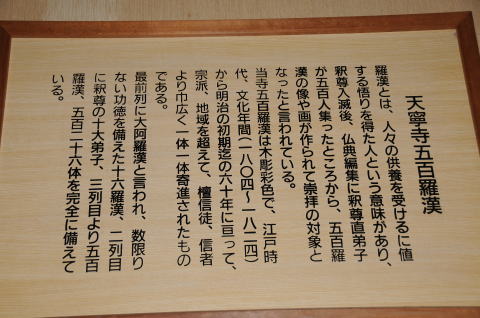 天寧寺五百羅漢
羅漢とは、人々の供養を受けるに値
する悟りを得た人という意味があり、
釈尊入滅後、仏典編集に釈尊直弟子
が五百人集ったところから、五百羅
漢の像や画が作られて崇拝の対象と
なったと言われている。
当寺五百羅漢は木彫彩色で、江戸時
代、文化年間(一八〇四〜一八二四)
から明治の初期迄の六十年に亘って、
宗派、地域を超えて、檀信徒、信者
より巾広く一体一体寄進されたもの
である。
最前列に大阿羅漢と言われ、数限り
ない功徳を備えた十六羅漢、二列目
に釈尊の十大弟子、三列目より五百
羅漢、五百二十六体を完全に備えて
いる。